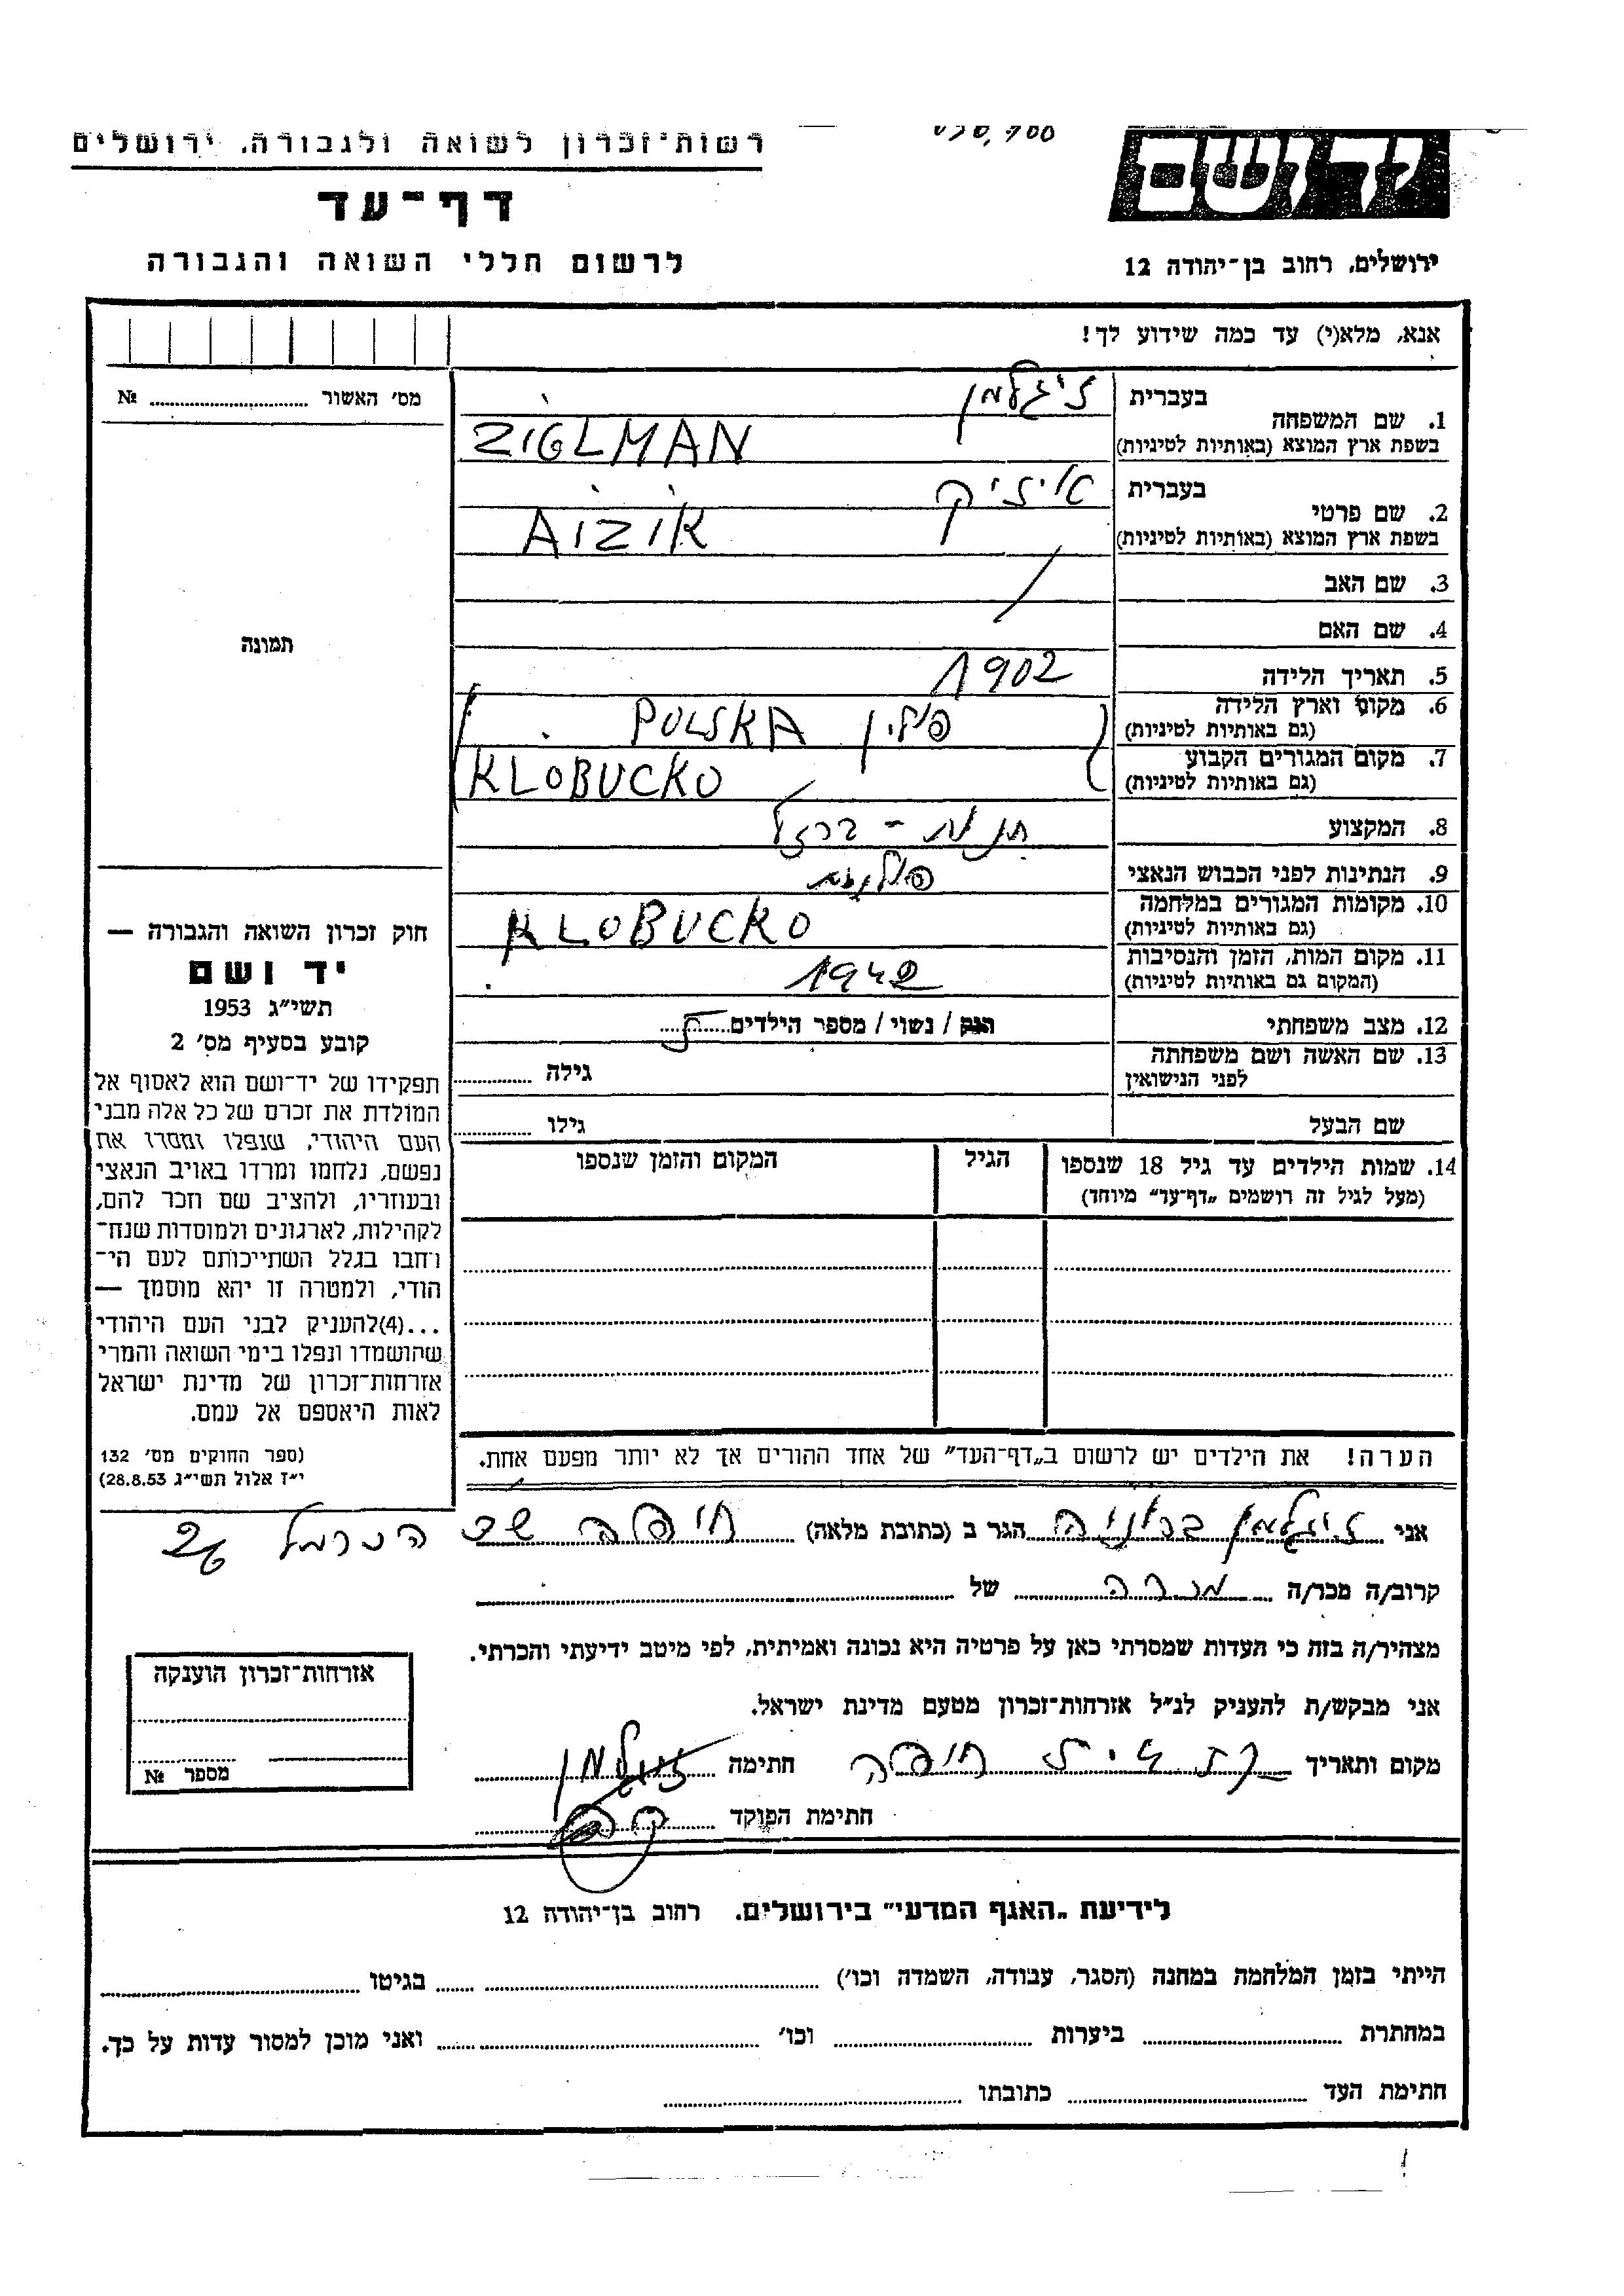 יד ושם
רשות־זכרון לשואה ולגבורה, ירושלים
דף־עד
ירושלים, רחוב בן־יהודה 12
לרשום חללי השואה והגבורה
אנא, מלא(י) עד כמה שידוע לך!
מס׳ האשור № ........
תמונה
1. שם המשפחה בעברית זיגלמן
בשפת ארץ המוצא (באותיות לטיניות) ZIGLMAN
2. שם פרטי בעברית אייזיק
בשפת ארץ המוצא (באותיות לטיניות) AIZIK
3. שם האב
4. שם האם
5. תאריך הלידה 1902
6. מקום וארץ הלידה פולין POLSKA
(גם באותיות לטיניות)
7. מקום המגורים הקבוע KLOBUCKO
(גם באותיות לטיניות)
8. המקצוע חנות - ברזל
9. הנתינות לפני הכבוש הנאצי פולנית
10. מקומות המגורים במלחמה KLOBUCKO
(גם באותיות לטיניות)
11. מקום המות, הזמן והנסיבות 1942
(המקום גם באותיות לטיניות)
12. מצב משפחתי רווק / נשוי / מספר הילדים
13. שם האשה ושם משפחתה גילה
לפני הנישואין
שם הבעל גילו
14. שמות הילדים עד גיל 18 שנספו הגיל המקום והזמן שנספו
(מעל לגיל זה רושמים „דף־עד" מיוחד)
הערה! את הילדים יש לרשום ב„דף־העד" של אחד ההורים אך לא יותר מפעם אחת.
חוק זכרון השואה והגבורה —
יד ושם
תשי״ג 1953
קובע בסעיף מס׳ 2
תפקידו של יד־ושם הוא לאסוף אל
המולדת את זכרם של כל אלה מבני
העם היהודי, שנפלו ומסרו את
נפשם, נלחמו ומרדו באויב הנאצי
ובעוזריו, ולהציב שם וזכר להם,
לקהילות, לארגונים ולמוסדות שנח־
רבו בגלל השתייכותם לעם הי־
הודי, ולמטרה זו יהא מוסמך —
...(4)להעניק לבני העם היהודי
שהושמדו ונפלו בימי השואה והמרי
אזרחות־זכרון של מדינת ישראל
לאות היאספם אל עמם.
(ספר החוקים מס׳ 132
י״ז אלול תשי״ג 28.8.53)
אני זיגלמן ברוניה הגר ב (כתובת מלאה) חיפה הכרמל
קרוב/ה מכר/ה מכרה של
מצהיר/ה בזה כי העדות שמסרתי כאן על פרטיה היא נכונה ואמיתית, לפי מיטב ידיעתי והכרתי.
אני מבקש/ת להעניק לנ״ל אזרחות־זכרון מטעם מדינת ישראל.
מקום ותאריך חיפה חתימה זיגלמן
חתימת הפוקד
אזרחות־זכרון הוענקה
מספר №
לידיעת „האגף המדעי" בירושלים, רחוב בן־יהודה 12
הייתי בזמן המלחמה במחנה (הסגר, עבודה, השמדה וכו׳) בגיטו
במחתרת ביערות וכו׳ ואני מוכן למסור עדות על כך.
חתימת העד כתובתו